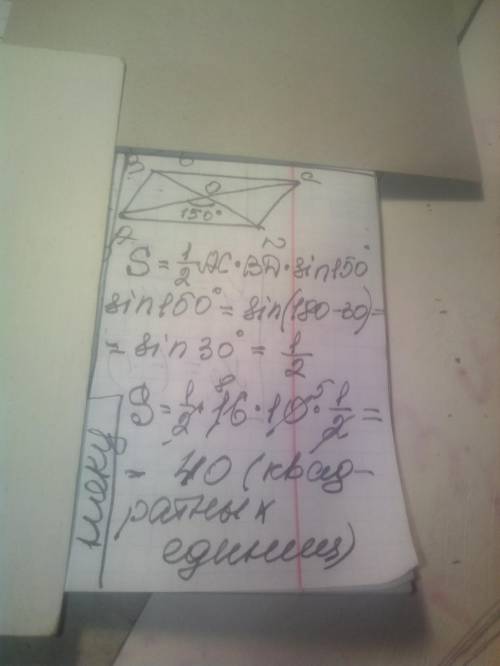 B
C
O
150°
A
S = 1/2 AC · BD · sin 150°
sin 150° = sin(180-30) =
= sin 30° = 1/2
S = 1/2 · 16 8 · 10 5 · 1/2 =
= 40 (квад-
ратных
единиц)